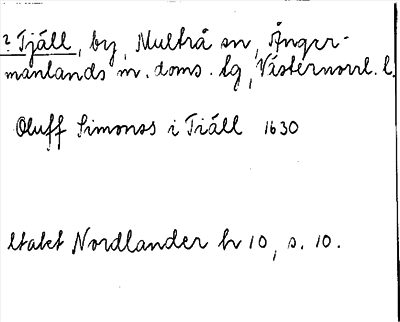 ? Tjäll, by, Multrå sn, Ånger-
manlands m. doms. tg, Västernorrl. l.
Oluff Simonss i Tiäll 1630
citatet Nordlander h 10, s. 10.